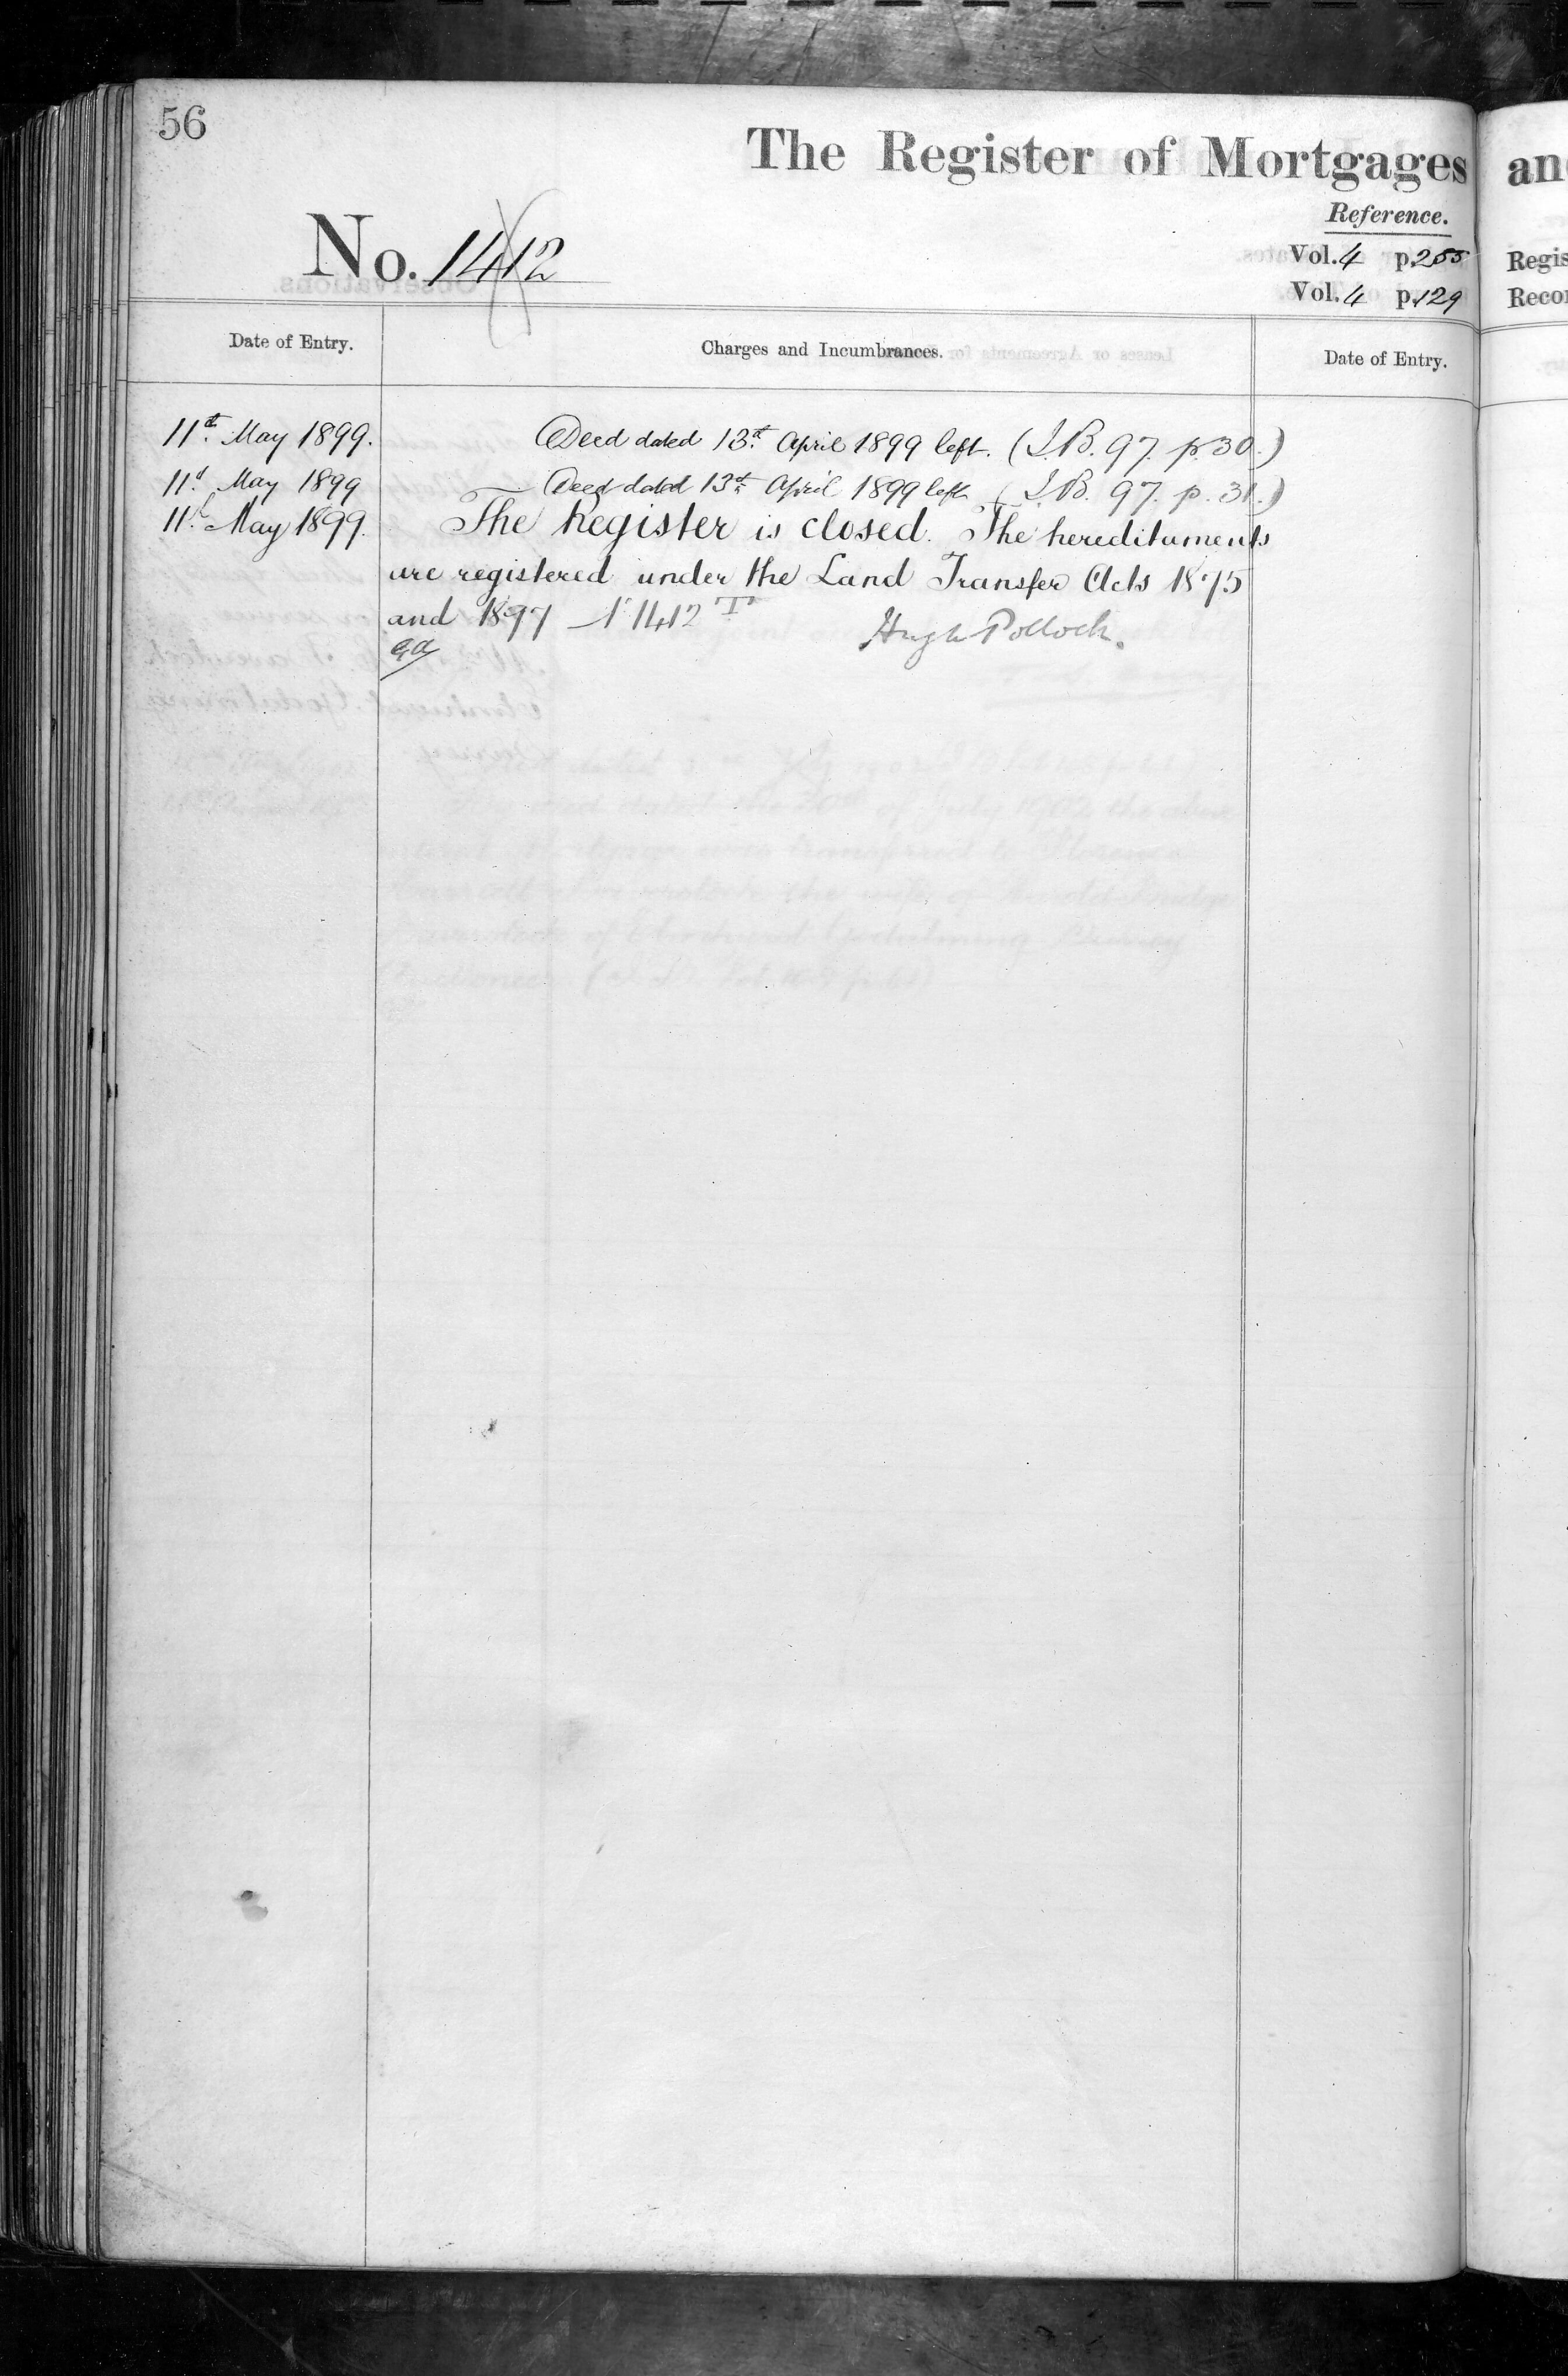 56
The Register of Mortgages
No. 1412
Reference.
Vol. 4 p. 255
Vol. 4 p. 129
Regis
Recor
Date of Entry.
Charges and Incumbrances.
Date of Entry.
11th May 1899. Deed dated 13th April 1899 left. (I.B. 97. p. 30.)
11th May 1899 Deed dated 13th April 1899 left (I.B. 97. p. 31.)
11th May 1899. The Register is closed. The hereditaments
are registered under the Land Transfer Acts 1875
and 1897 No 1412
Hugh Pollock.